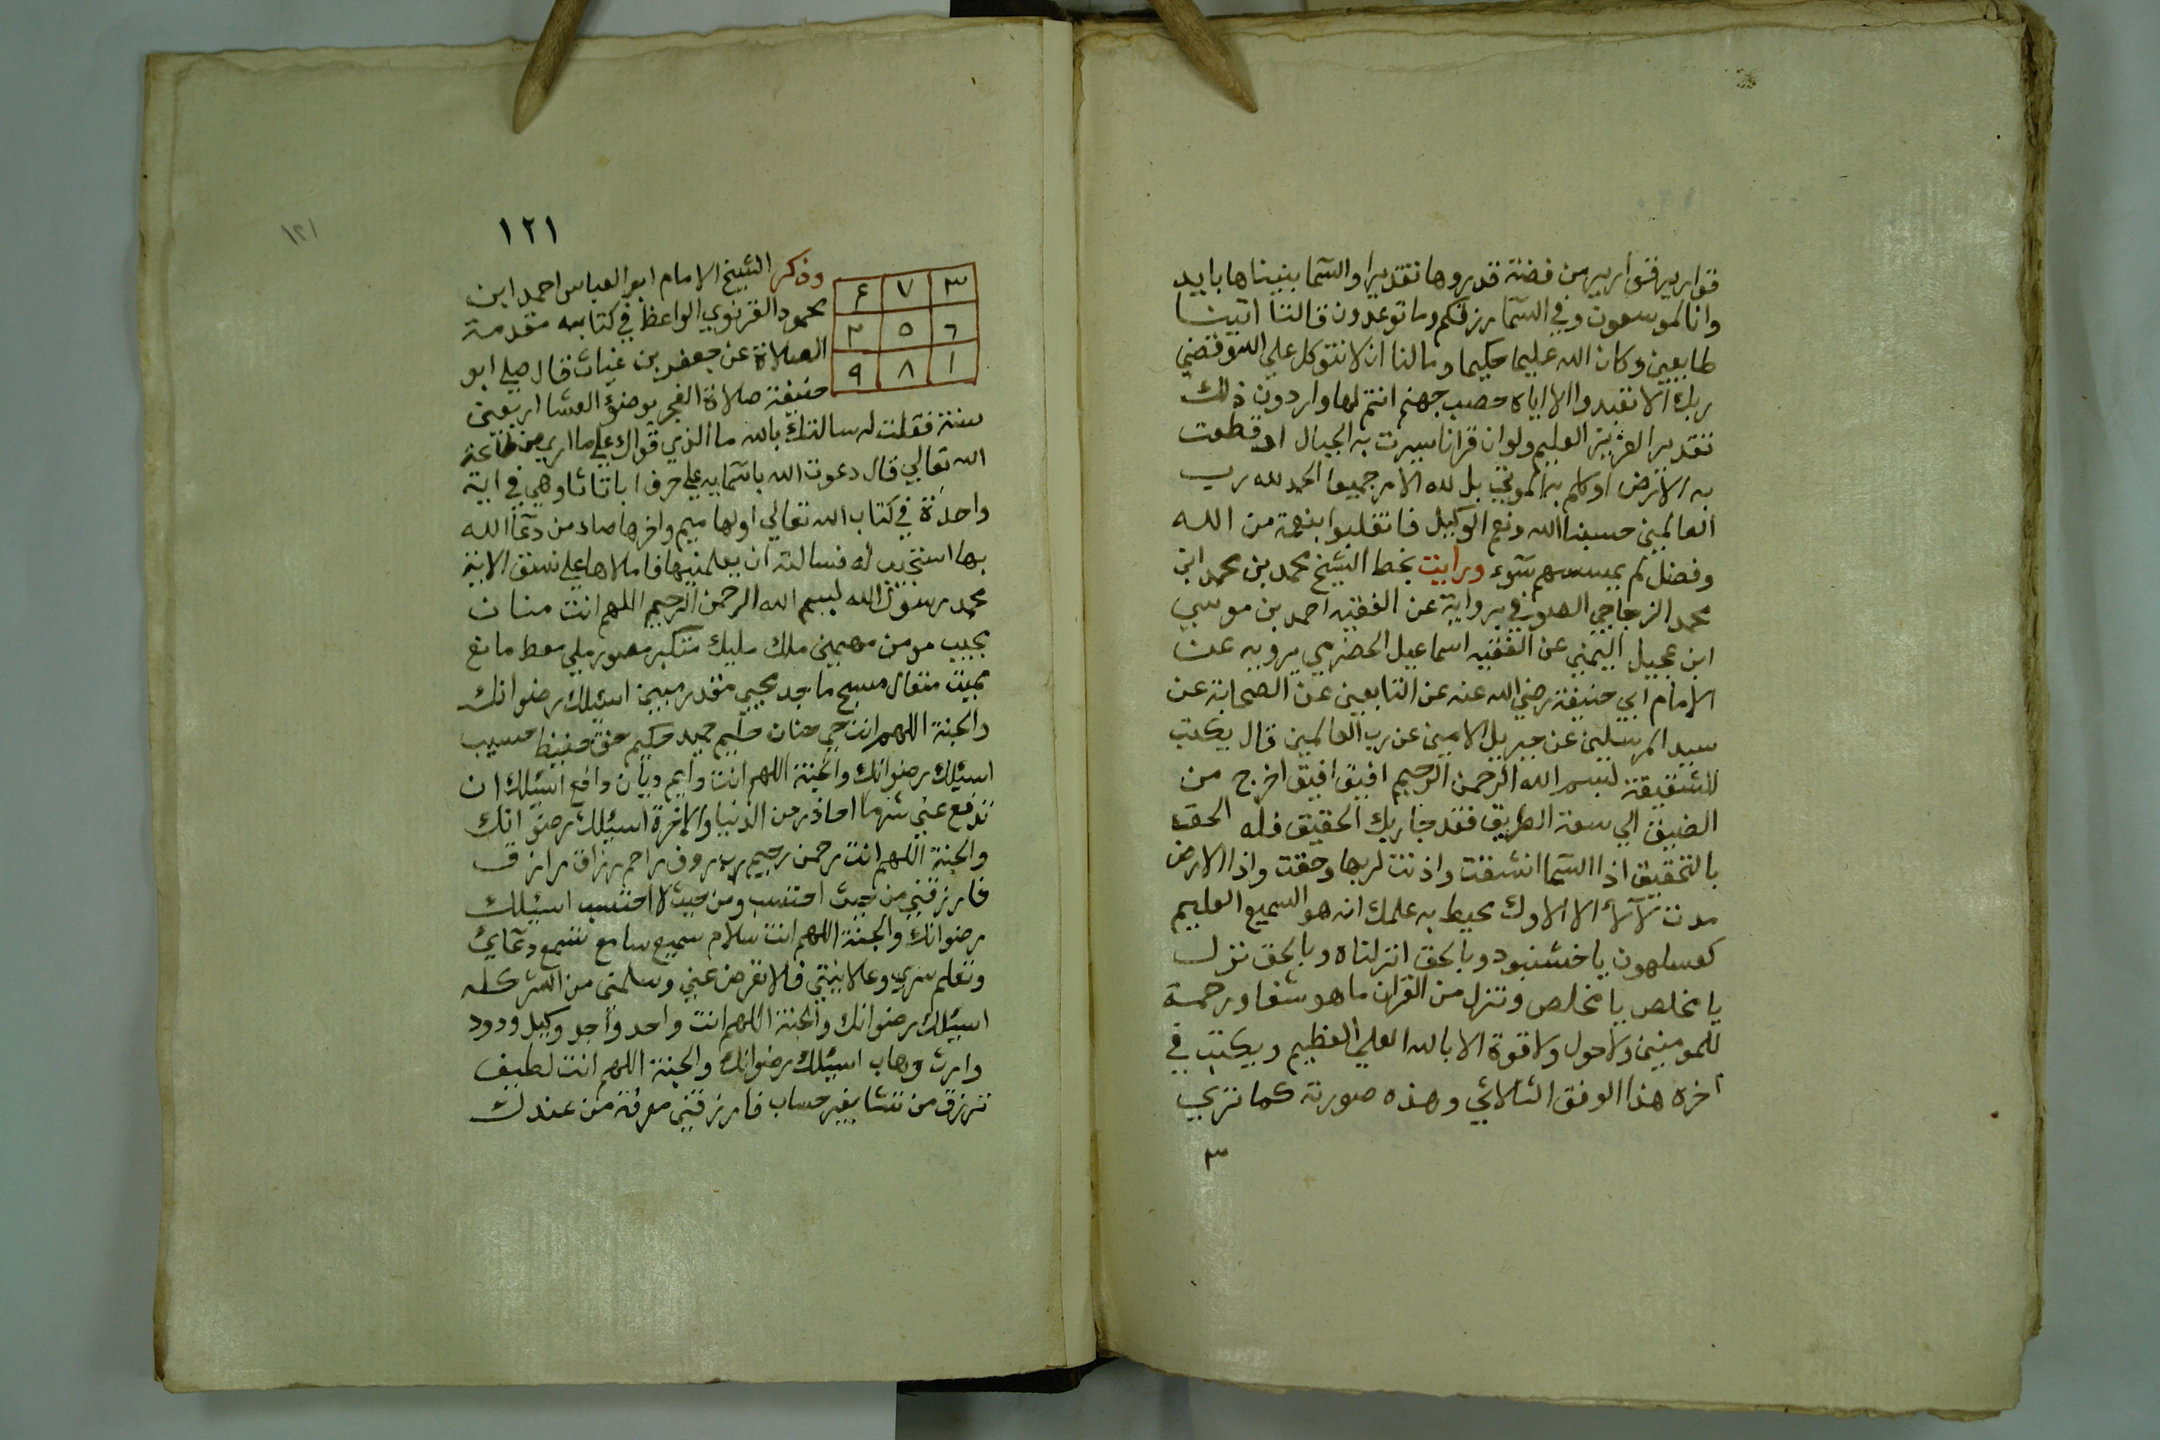 قوارير قوارير من فضة قدروها تقديرا والسما بنيناها بايد
وانا لموسعون وفي السما رزقكم وما توعدون قالتا اتينا
طايعين وكان الله عليما حكيما وما لنا ان لا نتوكل علي الله وقضي
ربك الا تعبدوا الا اياه حصب جهنم انتم لها واردون ذلك
تقدير العزيز العليم ولو ان قرانا سيرت به الجبال او قطعت
به الارض او كلم به الموتي بل لله الامر جميعا الحمد لله رب
العالمين حسبنا الله ونعم الوكيل فانقلبوا بنعمة من الله
وفضل لم يمسسهم سوء ورايت بخط الشيخ محمد بن محمد ابن
محمد الزجاجي الصوفي برواية عن الفقيه احمد بن موسي
ابن عجيل اليمني عن الفقيه اسماعيل الحضرمي يرويه عن
الامام ابي حنيفة رضي الله عنه عن التابعين عن الصحابة عن
سيد المرسلين عن جبريل الامين عن رب العالمين قال يكتب
للشقيقة بسم الله الرحمن الرحيم افيق افيق اخرج من
الضيق الي سعة الطريق فقد جا ربك الحقيق فله الحق
بالتحقيق اذا السما انشقت واذنت لربها وحقت واذا الارض
مدت لآلآ الا الاوك محيط به علمك انه هو السميع العليم
كعسلهون يا خشنبود وبالحق انزلناه وبالحق نزل
يا مخلص يا مخلص وننزل من القران ما هو شفا ورحمة
للمومنين ولا حول ولا قوة الا بالله العلي العظيم ويكتب في
اخره هذا الوفق الثلاثي وهذه صورته كما تري
٣
١٢١
١٢١
٣ ٧ ٤
٦ ٥ ٣
١ ٨ ٩
وذكر الشيخ الامام ابو العباس احمد ابن
محمود القزنوي الواعظ في كتابه مقدمة
الصلاة عن جعفر بن غياث قال صلي ابو
حنيفة صلاة الفجر بوضؤ العشا اربعين
سنة فقلت له سالتك بالله ما الذي قواك علي ما اري من طاعة
الله تعالي قال دعوت الله باسمايه علي حرف ا با تا ثا وهي في اية
واحدة في كتاب الله تعالي اولها ميم واخرها صاد من دعا الله
بها استجيب له فسالته ان يعلمنيها فاملاها علي نسق الاية
محمد رسول الله بسم الله الرحمن الرحيم اللهم انت منان
مجيب مومن مهيمن ملك مليك متكبر مصور ملي معط مانع
مميت متعال مسبح ماجد محيي مقدر مبين اسيلك رضوانك
والجنة اللهم انت حي حنان حليم حميد حكيم حق حفيظ حسيب
اسيلك رضوانك والجنة اللهم انت دايم ديان دافع اسيلك ان
تدفع عني شر ما احاذر من الدنيا والاخرة اسيلك رضوانك
والجنة اللهم انت رحمن رحيم رب روف راحم رزاق رازق
فارزقني من حيث احتسب ومن حيث لا احتسب اسيلك
رضوانك والجنة اللهم انت سلام سميع سامع تسمع دعاي
وتعلم سري وعلانيتي فلا تعرض عني وسلمني من الشر كله
اسيلك رضوانك والجنة اللهم انت واحد واجد وكيل ودود
وارث وهاب اسيلك رضوانك والجنة اللهم انت لطيف
ترزق من تشا بغير حساب فارزقني معرفة من عندك